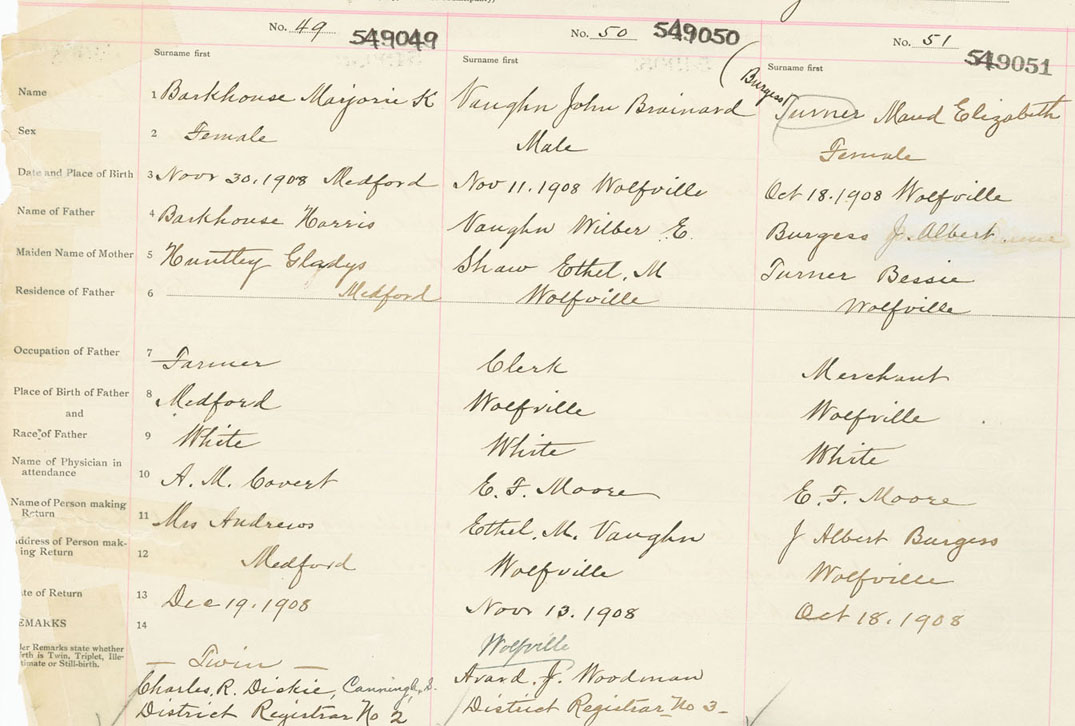 No. 49 549049 No. 50 549050 No. 51 549051
Surname first Surname first Surname first
Name 1 Barkhouse Marjorie K Vaughn John Brainard (Burgess) Turner Maud Elizabeth
Sex 2 Female Male Female
Date and Place of Birth 3 Novr 30. 1908 Medford Nov 11. 1908 Wolfville Oct 18. 1908 Wolfville
Name of Father 4 Barkhouse Harris Vaughn Wilber E. Burgess J. Albert
Maiden Name of Mother 5 Huntley Gladys Shaw Ethel. M Turner Bessie
Residence of Father 6 Medford Wolfville Wolfville
Occupation of Father 7 Farmer Clerk Merchant
Place of Birth of Father 8 Medford Wolfville Wolfville
and
Race of Father 9 White White White
Name of Physician in
attendance 10 A. M. Covert E. F. Moore E. F. Moore
Name of Person making
Return 11 Mrs Andrews Ethel. M. Vaughn J Albert Burgess
ddress of Person mak-
ing Return 12 Medford Wolfville Wolfville
te of Return 13 Dec 19. 1908 Novr 13. 1908 Oct 18. 1908
EMARKS 14
er Remarks state whether
rth is Twin, Triplet, Ille-
timate or Still-birth.
— Twin — Wolfville
Charles. R. Dickie, Canning Avard. J. Woodman
District Registrar No 2 District Registrar No 3-